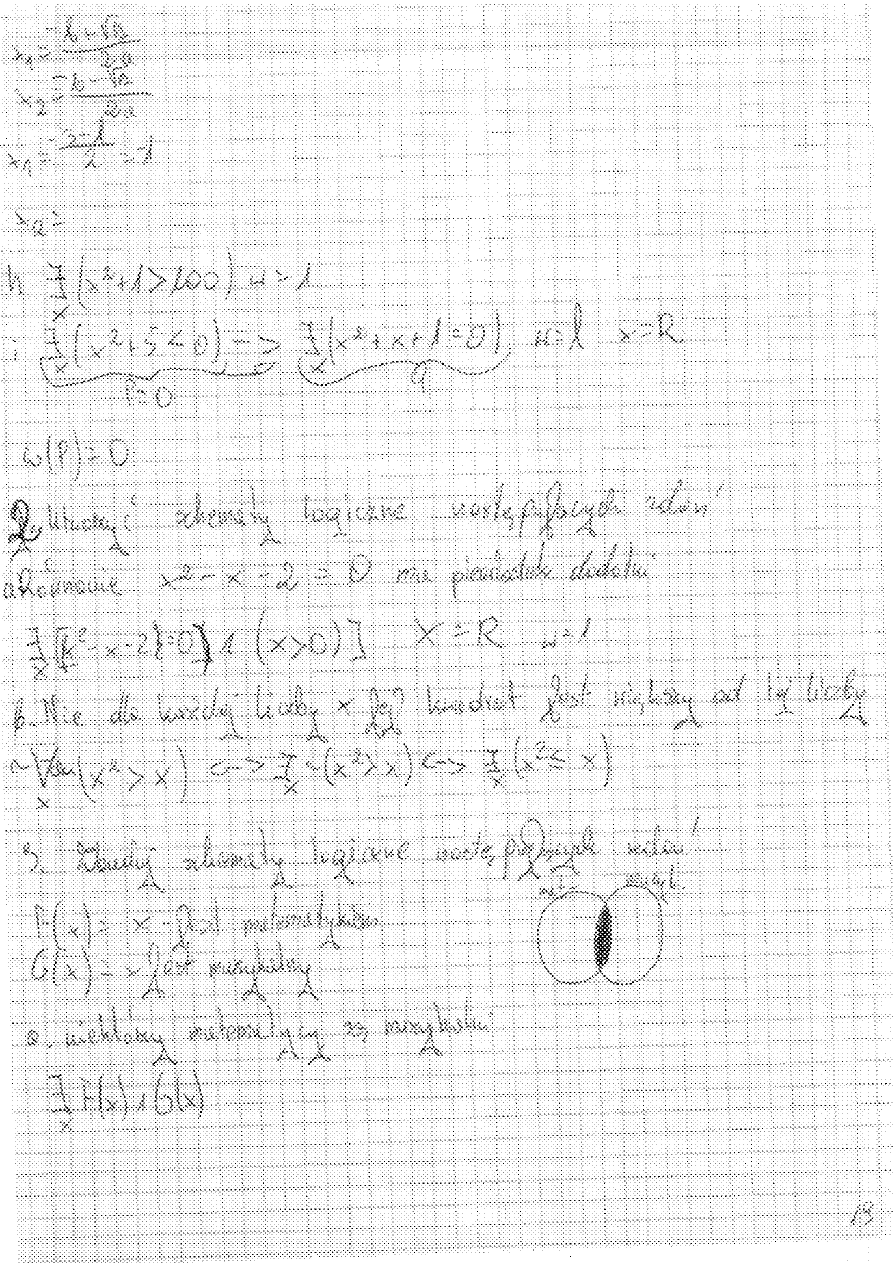 x₁ = (-b+√Δ)/2a
x₂ = (-b-√Δ)/2a
x₁ = (-2-1)/2 = -1
x₂ =
h ∃x (x²+1>100) w=1
i ∃x (x²+5<0) -> ∃x (x²+x+1=0) w=1 x=R
P=0 q
w(P)=0
2. schematy logiczne następujących zdań
a Równanie x²-x-2=0 ma pierwiastek dodatni
∃x [(x²-x-2)=0) ∧ (x>0)] X=R w=1
b. Nie dla każdej liczby x jej kwadrat jest większy od tej liczby
~∀x (x²>x) <-> ∃x ~(x²>x) <-> ∃x (x²≤x)
3. Zbuduj schematy logiczne następujących zdań
mat. muzyk.
F(x) = x jest matematykiem
G(x) = x jest muzykalny
a. niektórzy matematycy są muzykalni
∃x F(x) ∧ G(x)